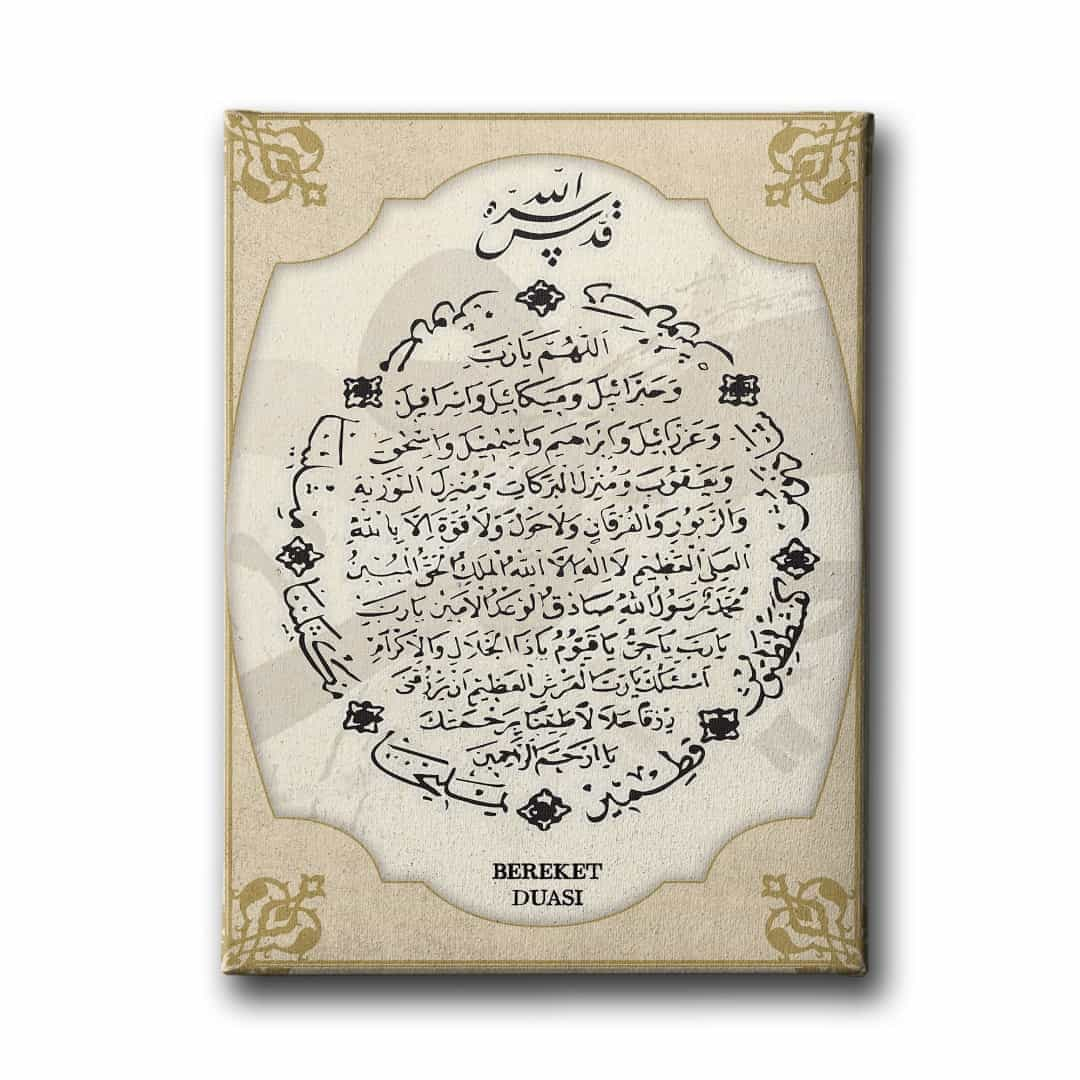 قدس الله سره
اللهم يارب
وجبرائيل وميكائيل واسرافيل
وعزرائيل وابراهيم واسمعيل واسحق
ويعقوب ومنزل البركات ومنزل التورية
والزبور والفرقان ولا حول ولا قوة الا بالله
العلى العظيم لا اله الا الله الملك الحق المبين
محمد رسول الله صادق الوعد الامين يارب
يارب ياحى ياقيوم ياذا الجلال والاكرام
اسئلك يارب العرش العظيم ان يرزقنى
رزقا حلالا طيبا برحمتك
يا ارحم الراحمين
قطمير
يمليخا
مكثلينا
BEREKET
DUASI